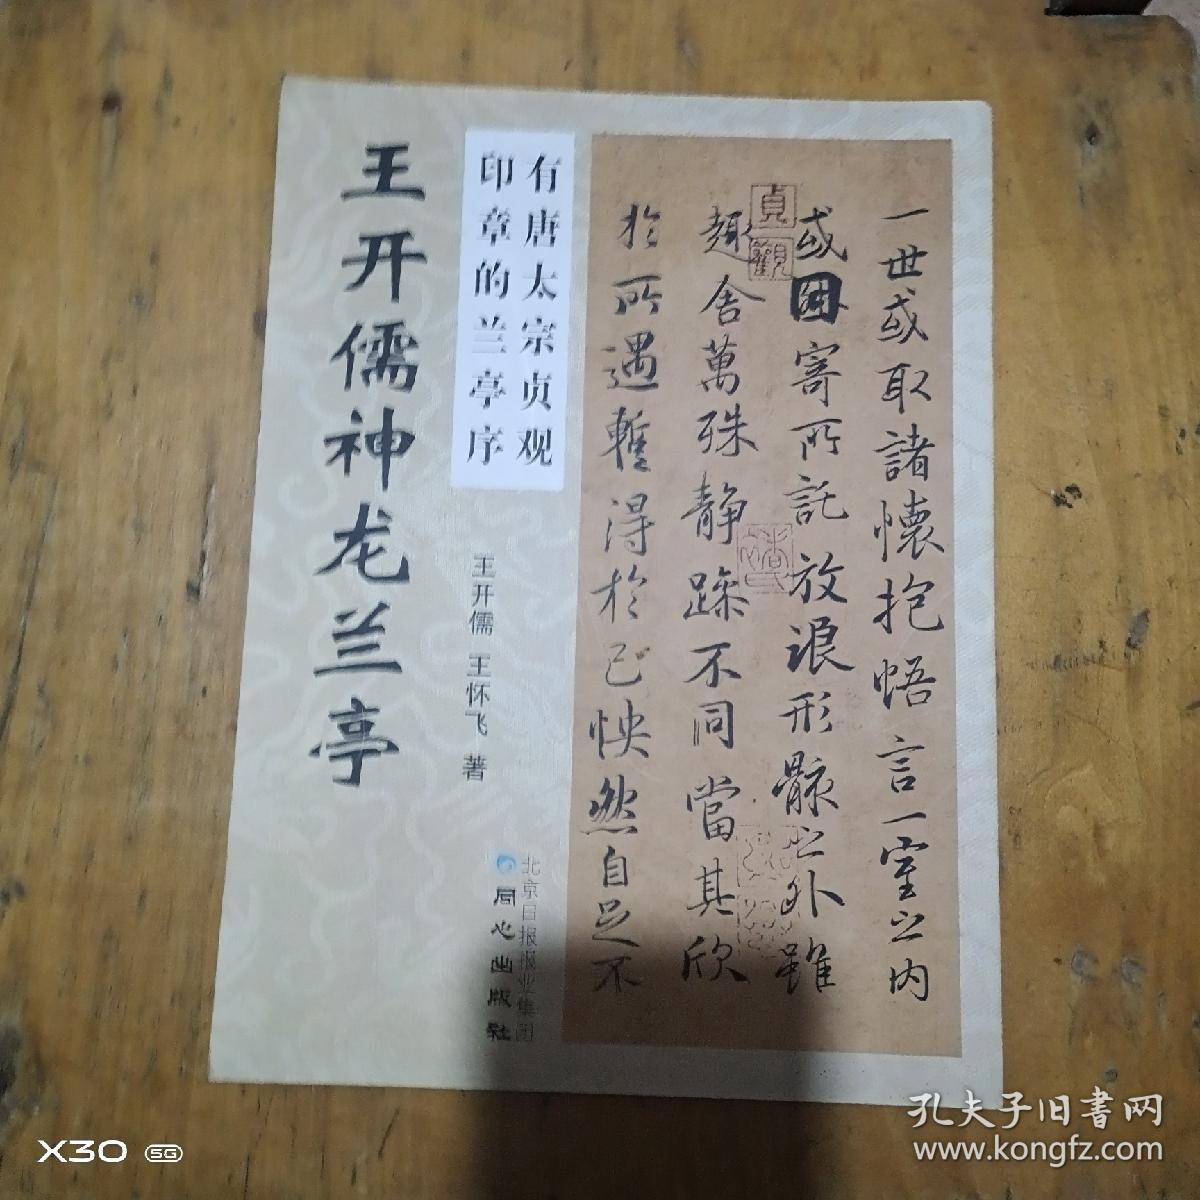 王开儒神龙兰亭
有唐太宗贞观
印章的兰亭序
王开儒 王怀飞 著
北京日报报业集团
同心出版社
一世或取諸懷抱悟言一室之内
或因寄所託放浪形骸之外雖
趣舍萬殊静躁不同當其欣
於所遇暫得於己怏然自足不
貞觀
孔夫子旧書网
www.kongfz.com
X30 5G